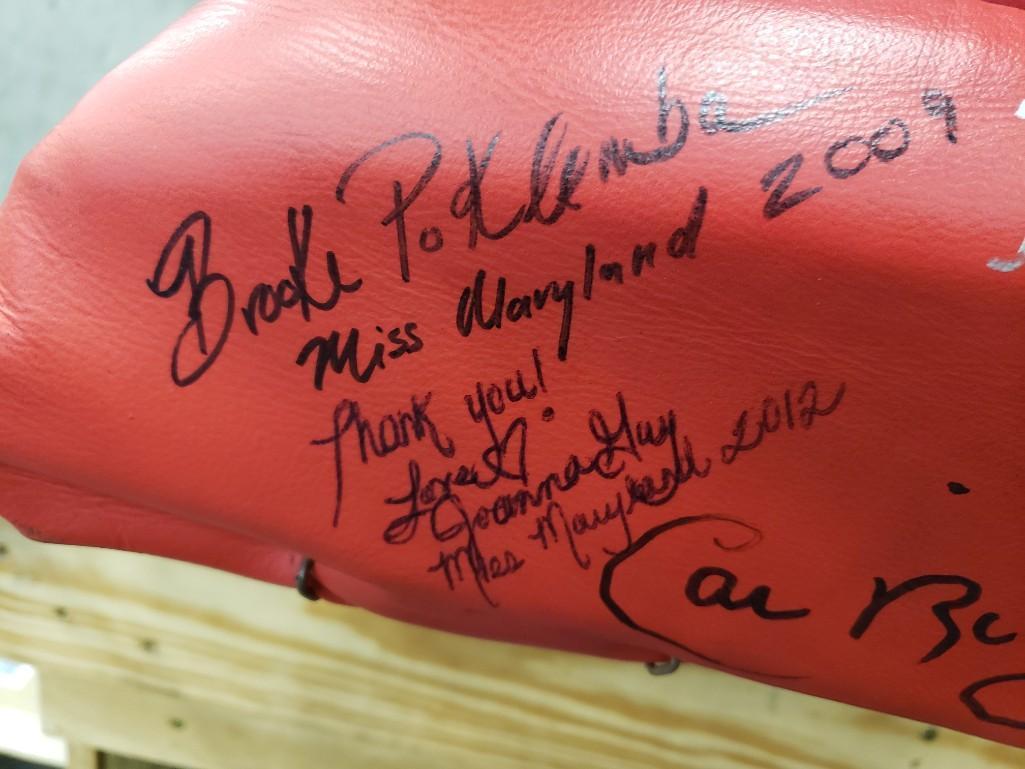 Brooke Poklemba
Miss Maryland 2009
Thank you!
Love
Joanna Guy
Miss Maryland 2012